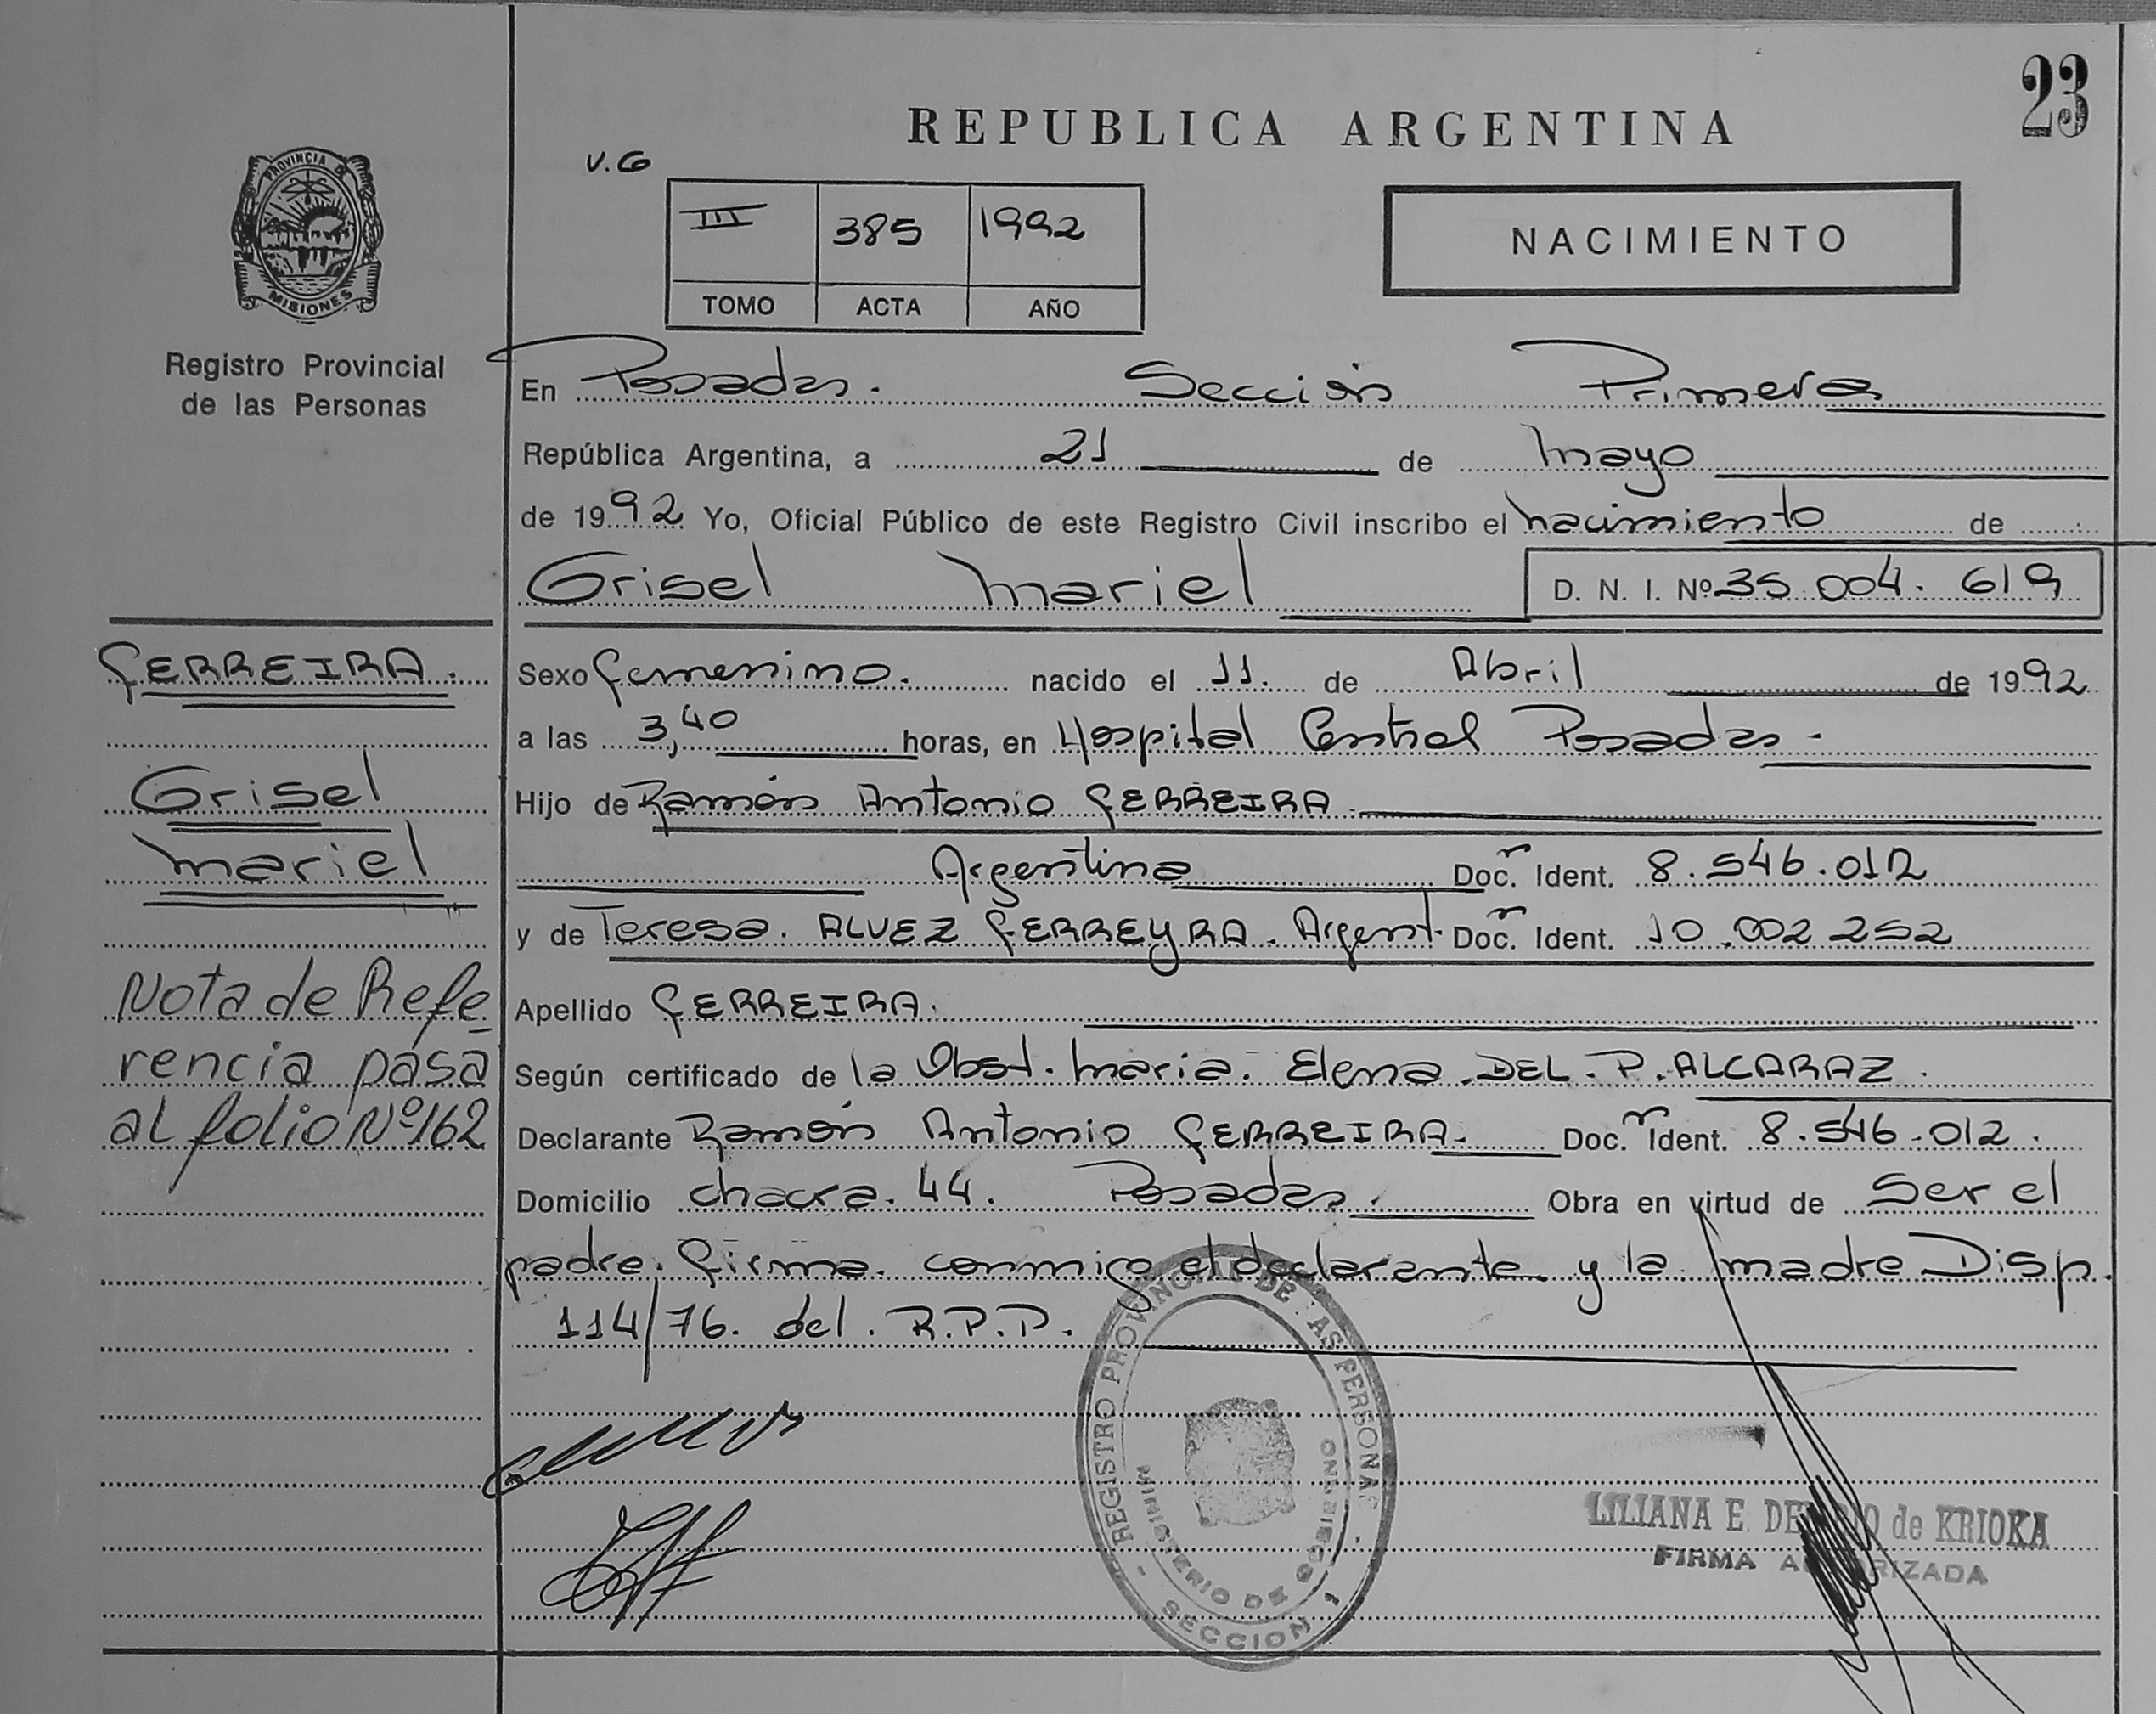 23
REPUBLICA ARGENTINA
V.G
III 385 1992
TOMO ACTA AÑO
NACIMIENTO
PROVINCIA DE
MISIONES
Registro Provincial
de las Personas
En Posadas. Sección Primera
República Argentina, a 21 de Mayo
de 1992 Yo, Oficial Público de este Registro Civil inscribo el nacimiento de
Grisel Mariel D. N. I. Nº 35.004.619
FERREIRA.
Grisel
Mariel
Nota de Refe
rencia pasa
al folio Nº 162
Sexo femenino. nacido el 11. de Abril de 1992
a las 3,40 horas, en Hospital Central Posadas.
Hijo de Ramón Antonio FERREIRA
Argentina Doc. Ident. 8.546.012
y de Teresa. ALVEZ FERREYRA. Argent. Doc. Ident. 10.002.252
Apellido FERREIRA.
Según certificado de la Obst. Maria. Elena DEL. P. ALCARAZ.
Declarante Ramón Antonio FERREIRA. Doc. Ident. 8.546.012.
Domicilio chacra. 44. Posadas. Obra en virtud de Ser el
padre. firma. conmigo el declarante y la madre Disp.
114/76. del. R.P.P.
REGISTRO PROVINCIAL DE LAS PERSONAS
MINISTERIO DE GOBIERNO
SECCION 1
LILIANA E. de KRIOKA
FIRMA AUTORIZADA